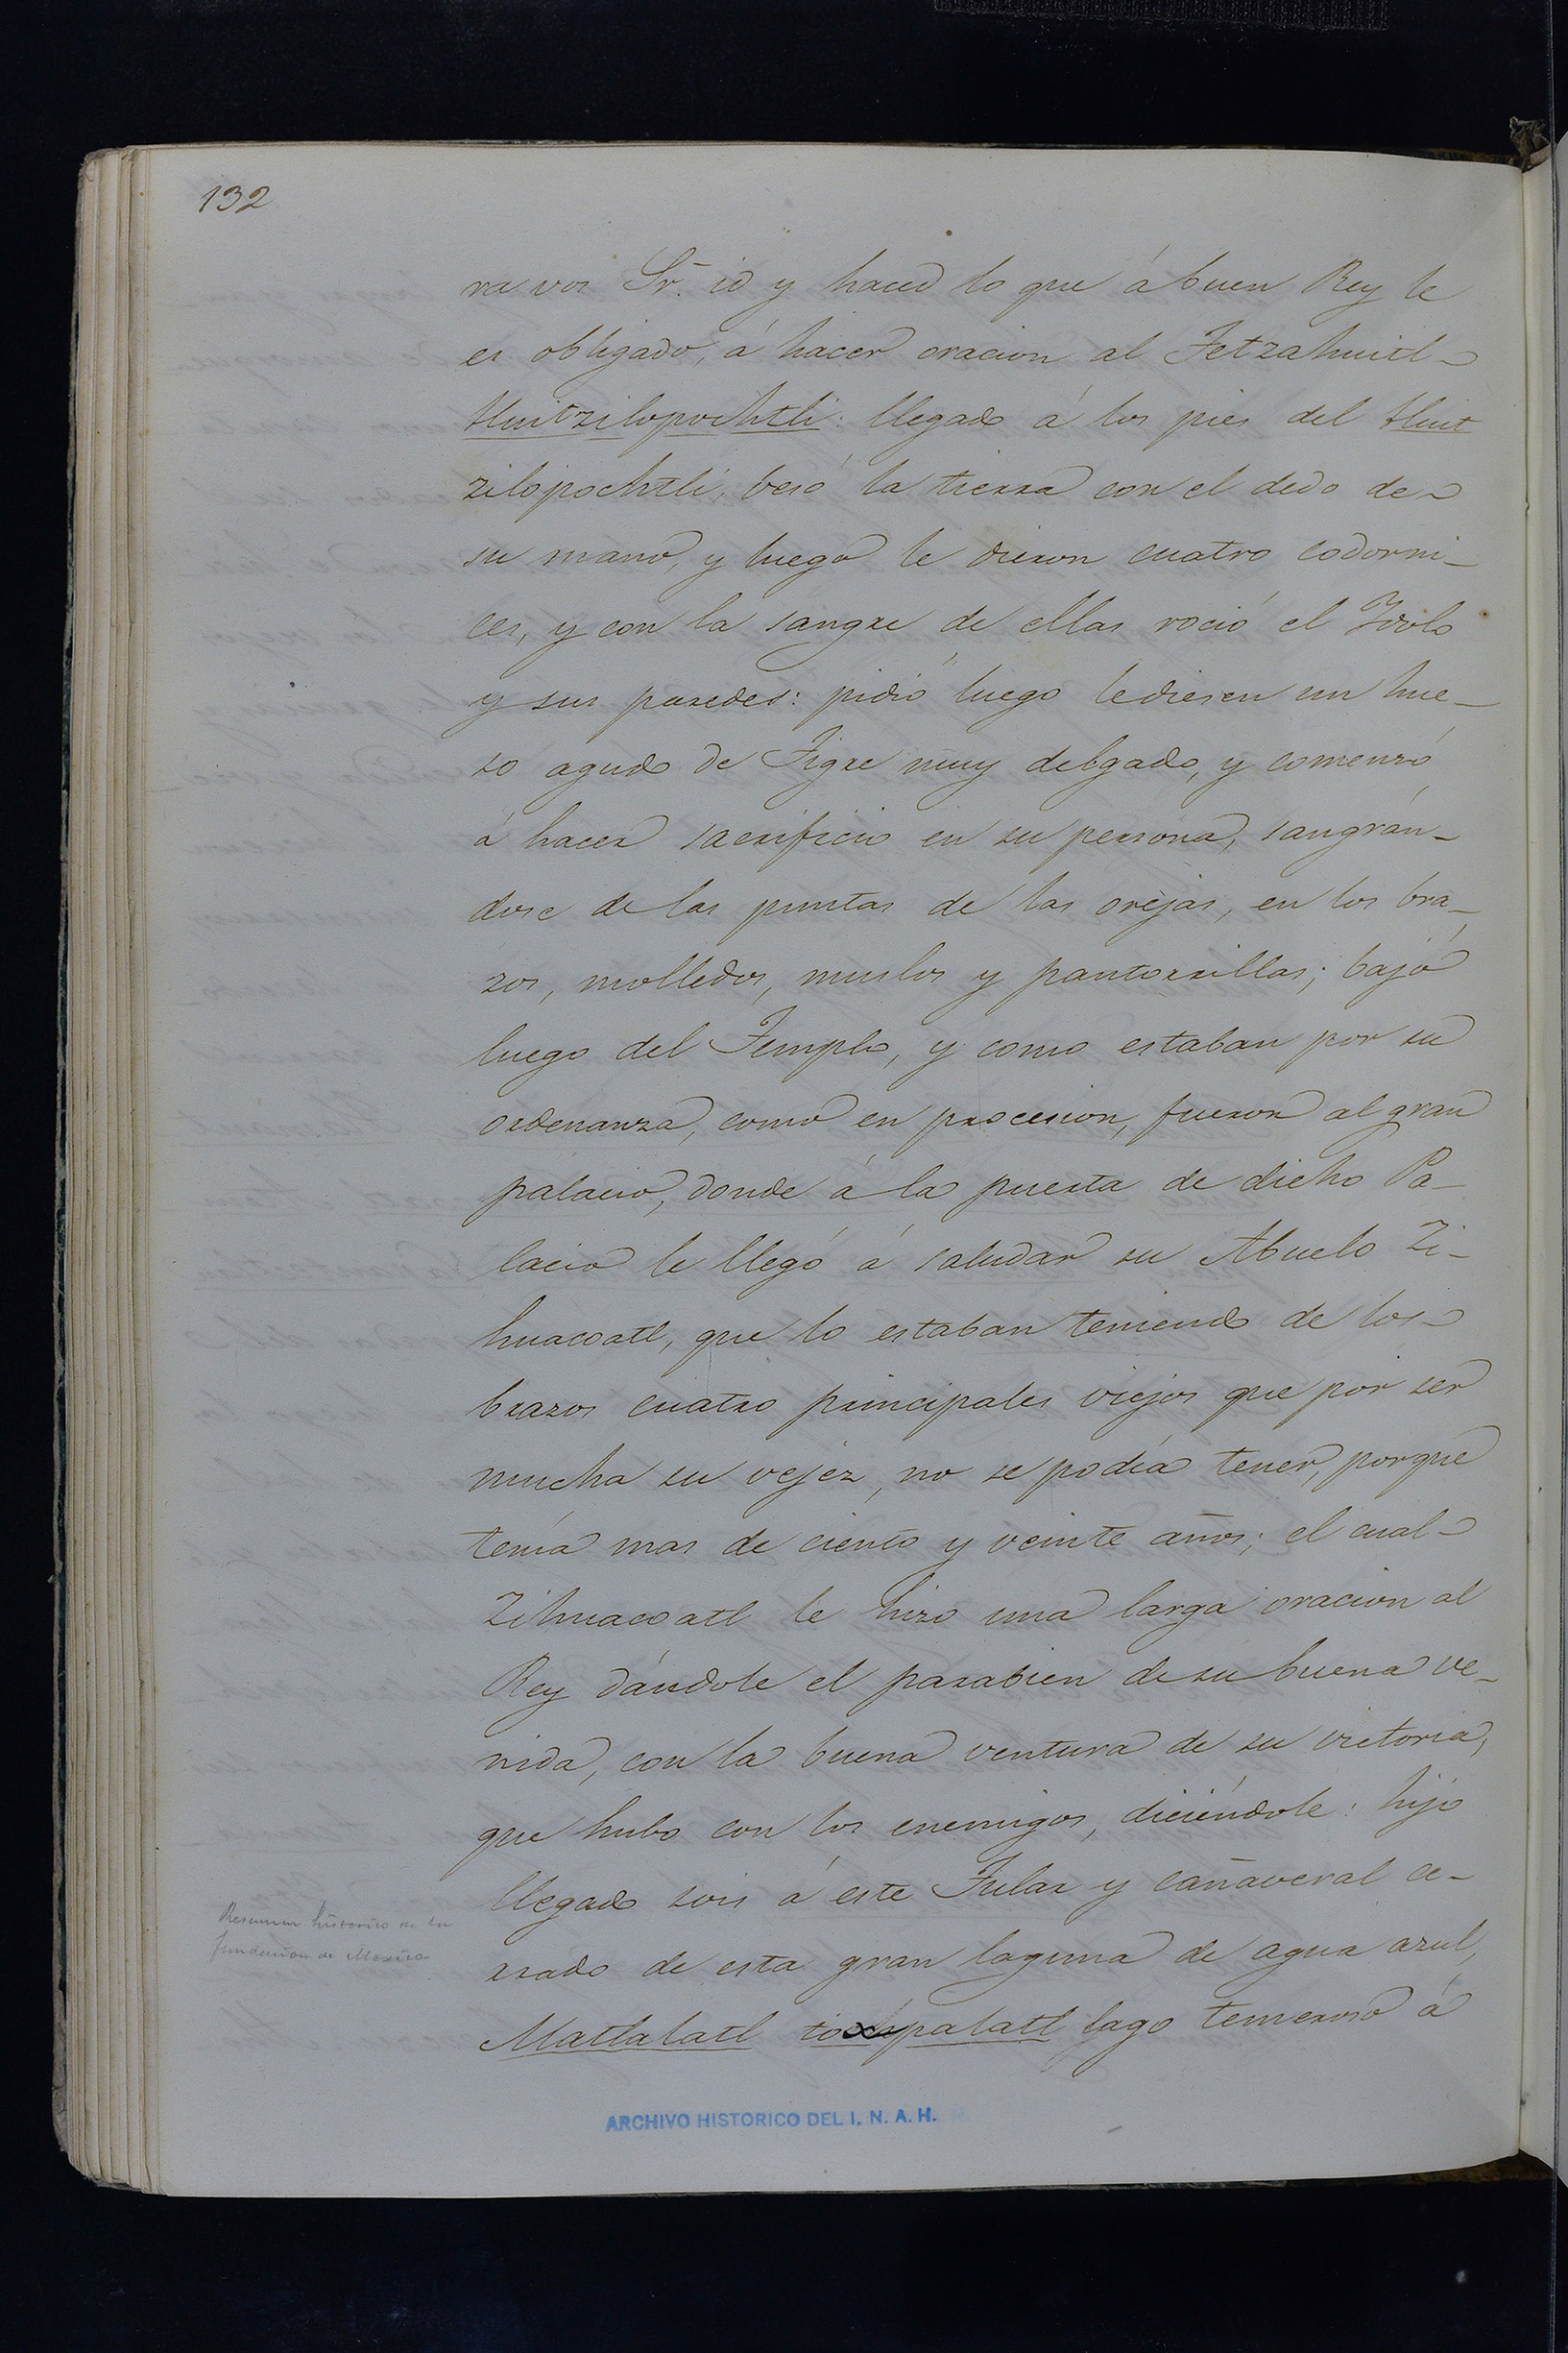 132
ra vos Sr. id y haced lo que á buen Rey le
es obligado, á hacer oracion al Tetzahuitl
Huitzilopochtli: llegado á los pies del Huit
zilopochtli, besó la tierra con el dedo de
su mano, y luego le dieron cuatro codorni-
ces, y con la sangre de ellas roció el Ydolo
y sus paredes: pidió luego le diesen un hue-
so agudo de Tigre muy delgado, y comenzó
á hacer sacrificio en su persona, sangrán-
dose de las puntas de las orejas, en los bra-
zos, molledos, muslos y pantorrillas; bajó
luego del Templo, y como estaban por su
ordenanza, como en procesion, fueron al gran
palacio, donde á la puerta de dicho Pa-
lacio le llegó á saludar su Abuelo Zi-
huacoatl, que lo estaban teniendo de los
brazos cuatro principales viejos que por ser
mucha su vejez, no se podía tener, porque
tenía mas de ciento y veinte años; el cual
Zihuacoatl le hizo una larga oracion al
Rey dándole el parabien de su buena ve-
nida, con la buena ventura de su victoria,
que hubo con los enemigos, diciéndole: hijo
llegado sois á este Tular y cañaveral ce-
rrado de esta gran laguna de agua azul,
Matlalatl toxpalatl lago temeroso á
Resumen historico de la
fundacion de Mexico
ARCHIVO HISTORICO DEL I. N. A. H.